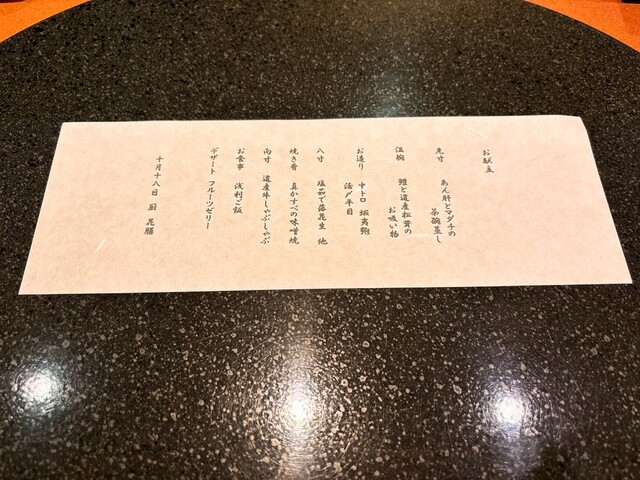 お献立
先寸 あん肝とマダチの
茶碗蒸し
温椀 鱧と道産松茸の
お吸い物
お造り 中トロ 蝦夷鮑
活〆平目
八寸 塩茹で落花生 他
焼き肴 真かすべの味噌焼
向寸 道産牛しゃぶしゃぶ
お食事 浅利ご飯
デザート フルーツゼリー
十月十八日 厨 花膳